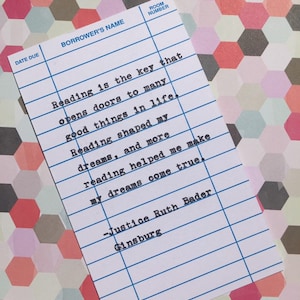 DATE DUE
BORROWER'S NAME
ROOM
NUMBER
Reading is the key that
opens doors to many
good things in life.
Reading shaped my
dreams, and more
reading helped me make
my dreams come true.
-Justice Ruth Bader
Ginsburg